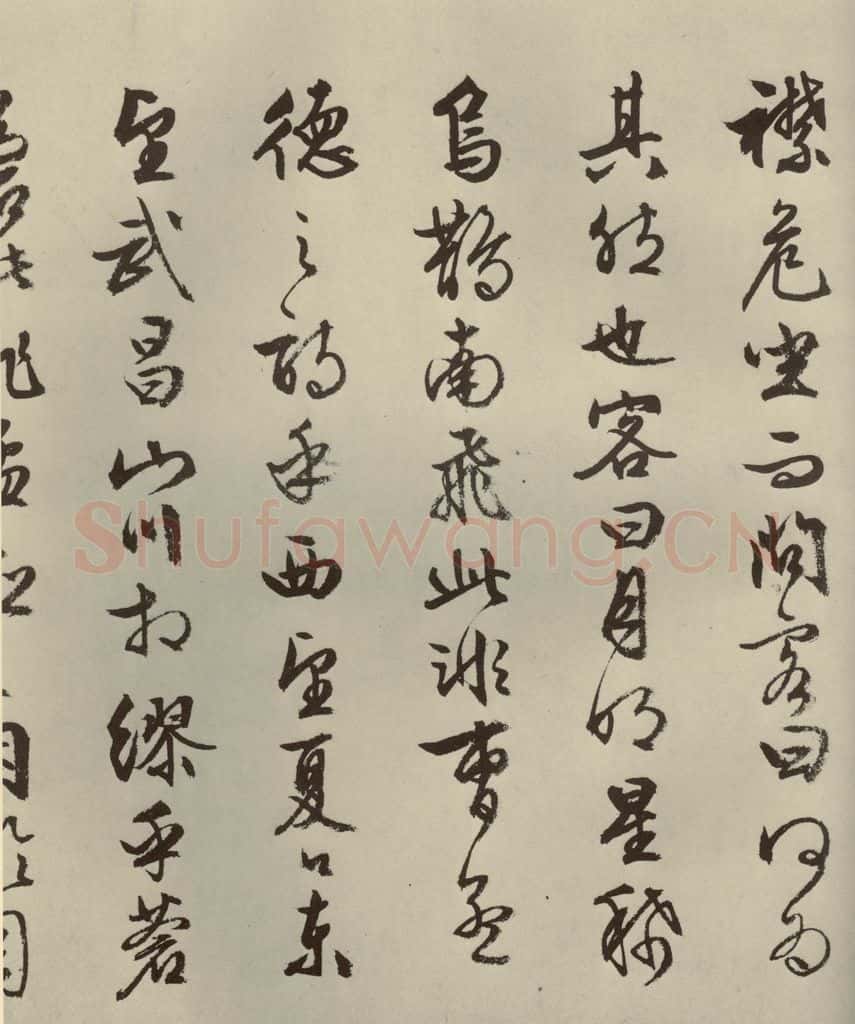 襟危坐而問客曰何為
其然也客曰月明星稀
烏鵲南飛此非曹孟
德之詩乎西望夏口東
望武昌山川相繆乎蒼
Shufawang.CN